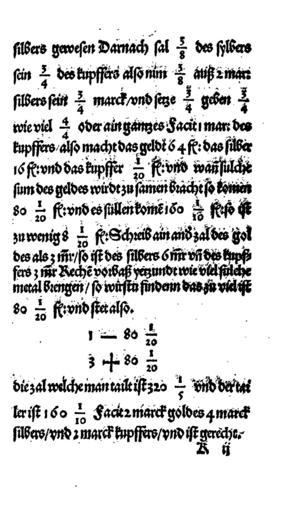 silbers gewesen Darnach sal 5/8 des sylbers
sein 3/4 des kupffers also nim 3/8 auß 2 marc
silbers sein 3/4 marck/vnd setze 3/4 geben 3/4
wie viel 4/4 oder ain gantzes Facit 1 mar: des
kupffers/also macht das geldt 64 fl: das silber
16 fl: vnd das kupffer 1/20 fl: vnd wañ sulche
sum des geldes wirdt zu samen bracht so komen
80 1/20 fl: vnd es süllen komē 160 1/10 fl: so ist
zu wenig 8 1/20 fl: Schreib ain and zal des gol
des als 3 mr/so ist des silbers 6 mr vñ des kupf
fers 3 mr Rechē vorbaß yetzundt wie viel sulche
metal brengen/so wirstu findenn das zu viel ist
80 1/20 fl: vnd stet also.
1 — 80 1/20
3 + 80 1/20
die zal welche man tailt ist 320 1/5 vnd der tai
ler ist 160 1/10 Facit 2 marck goldes 4 marck
silbers/vnd 2 marck kupffers/vnd ist gerecht.
K ij